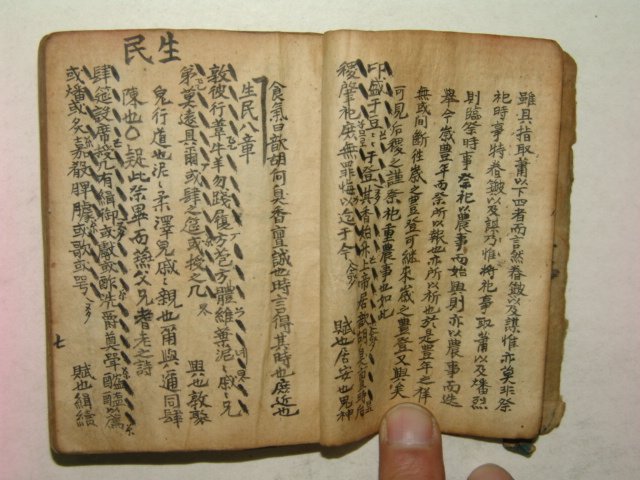 雖具指取蕭以下四者而言然眷皦以及謀惟亦矣非祭
祀時事特眷皦以及謀乃惟將祀事取蕭以及燔烈
則臨祭時事祭祀以農事而始興則亦以農事而迭
擧今歲豊年而祭所以報也亦所以祈也於是豊年之祥
無或间断往歲之豊登可継來歲之豊登又與矣
可見后稷之謹祭祀重農事也如此
卬盛于豆于豆于登其香始升上帝居歆胡臭亶時后
稷肇祀庶無罪悔以迄于今 賦也居安也鬼神
生民
食氣曰歆胡何臭香亶誠也時言得其時也庶近也
生民八章
敦彼行葦牛羊勿踐履方苞方體維葉泥〻戚〻兄
弟莫遠具爾或肆之筵或授之几 興也敦聚
皃行道也泥〻柔澤皃戚〻親也爾與邇同肆
陳也○疑此祭畢而燕父兄耆老之詩
肆筵設席授几有緝御或獻或酢洗爵奠斝醓醢以薦
或燔或炙嘉殽脾臄或歌或咢 賦也緝續
七